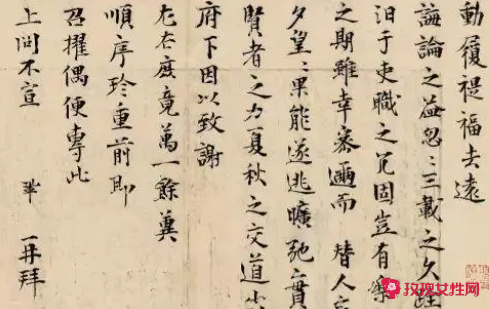 動履禔福去遠
誨論之益忽〻三載之久
汩于吏職之冗固豈有樂
之期雖幸密邇而替人
夕望〻果能遂逃曠弛實
賢者之力夏秋之交道
府下因以致謝
左右庶竟萬一餘冀
順序珍重前即
召擢偶便專此
上問不宣 鞏 再拜
玫瑰女性网